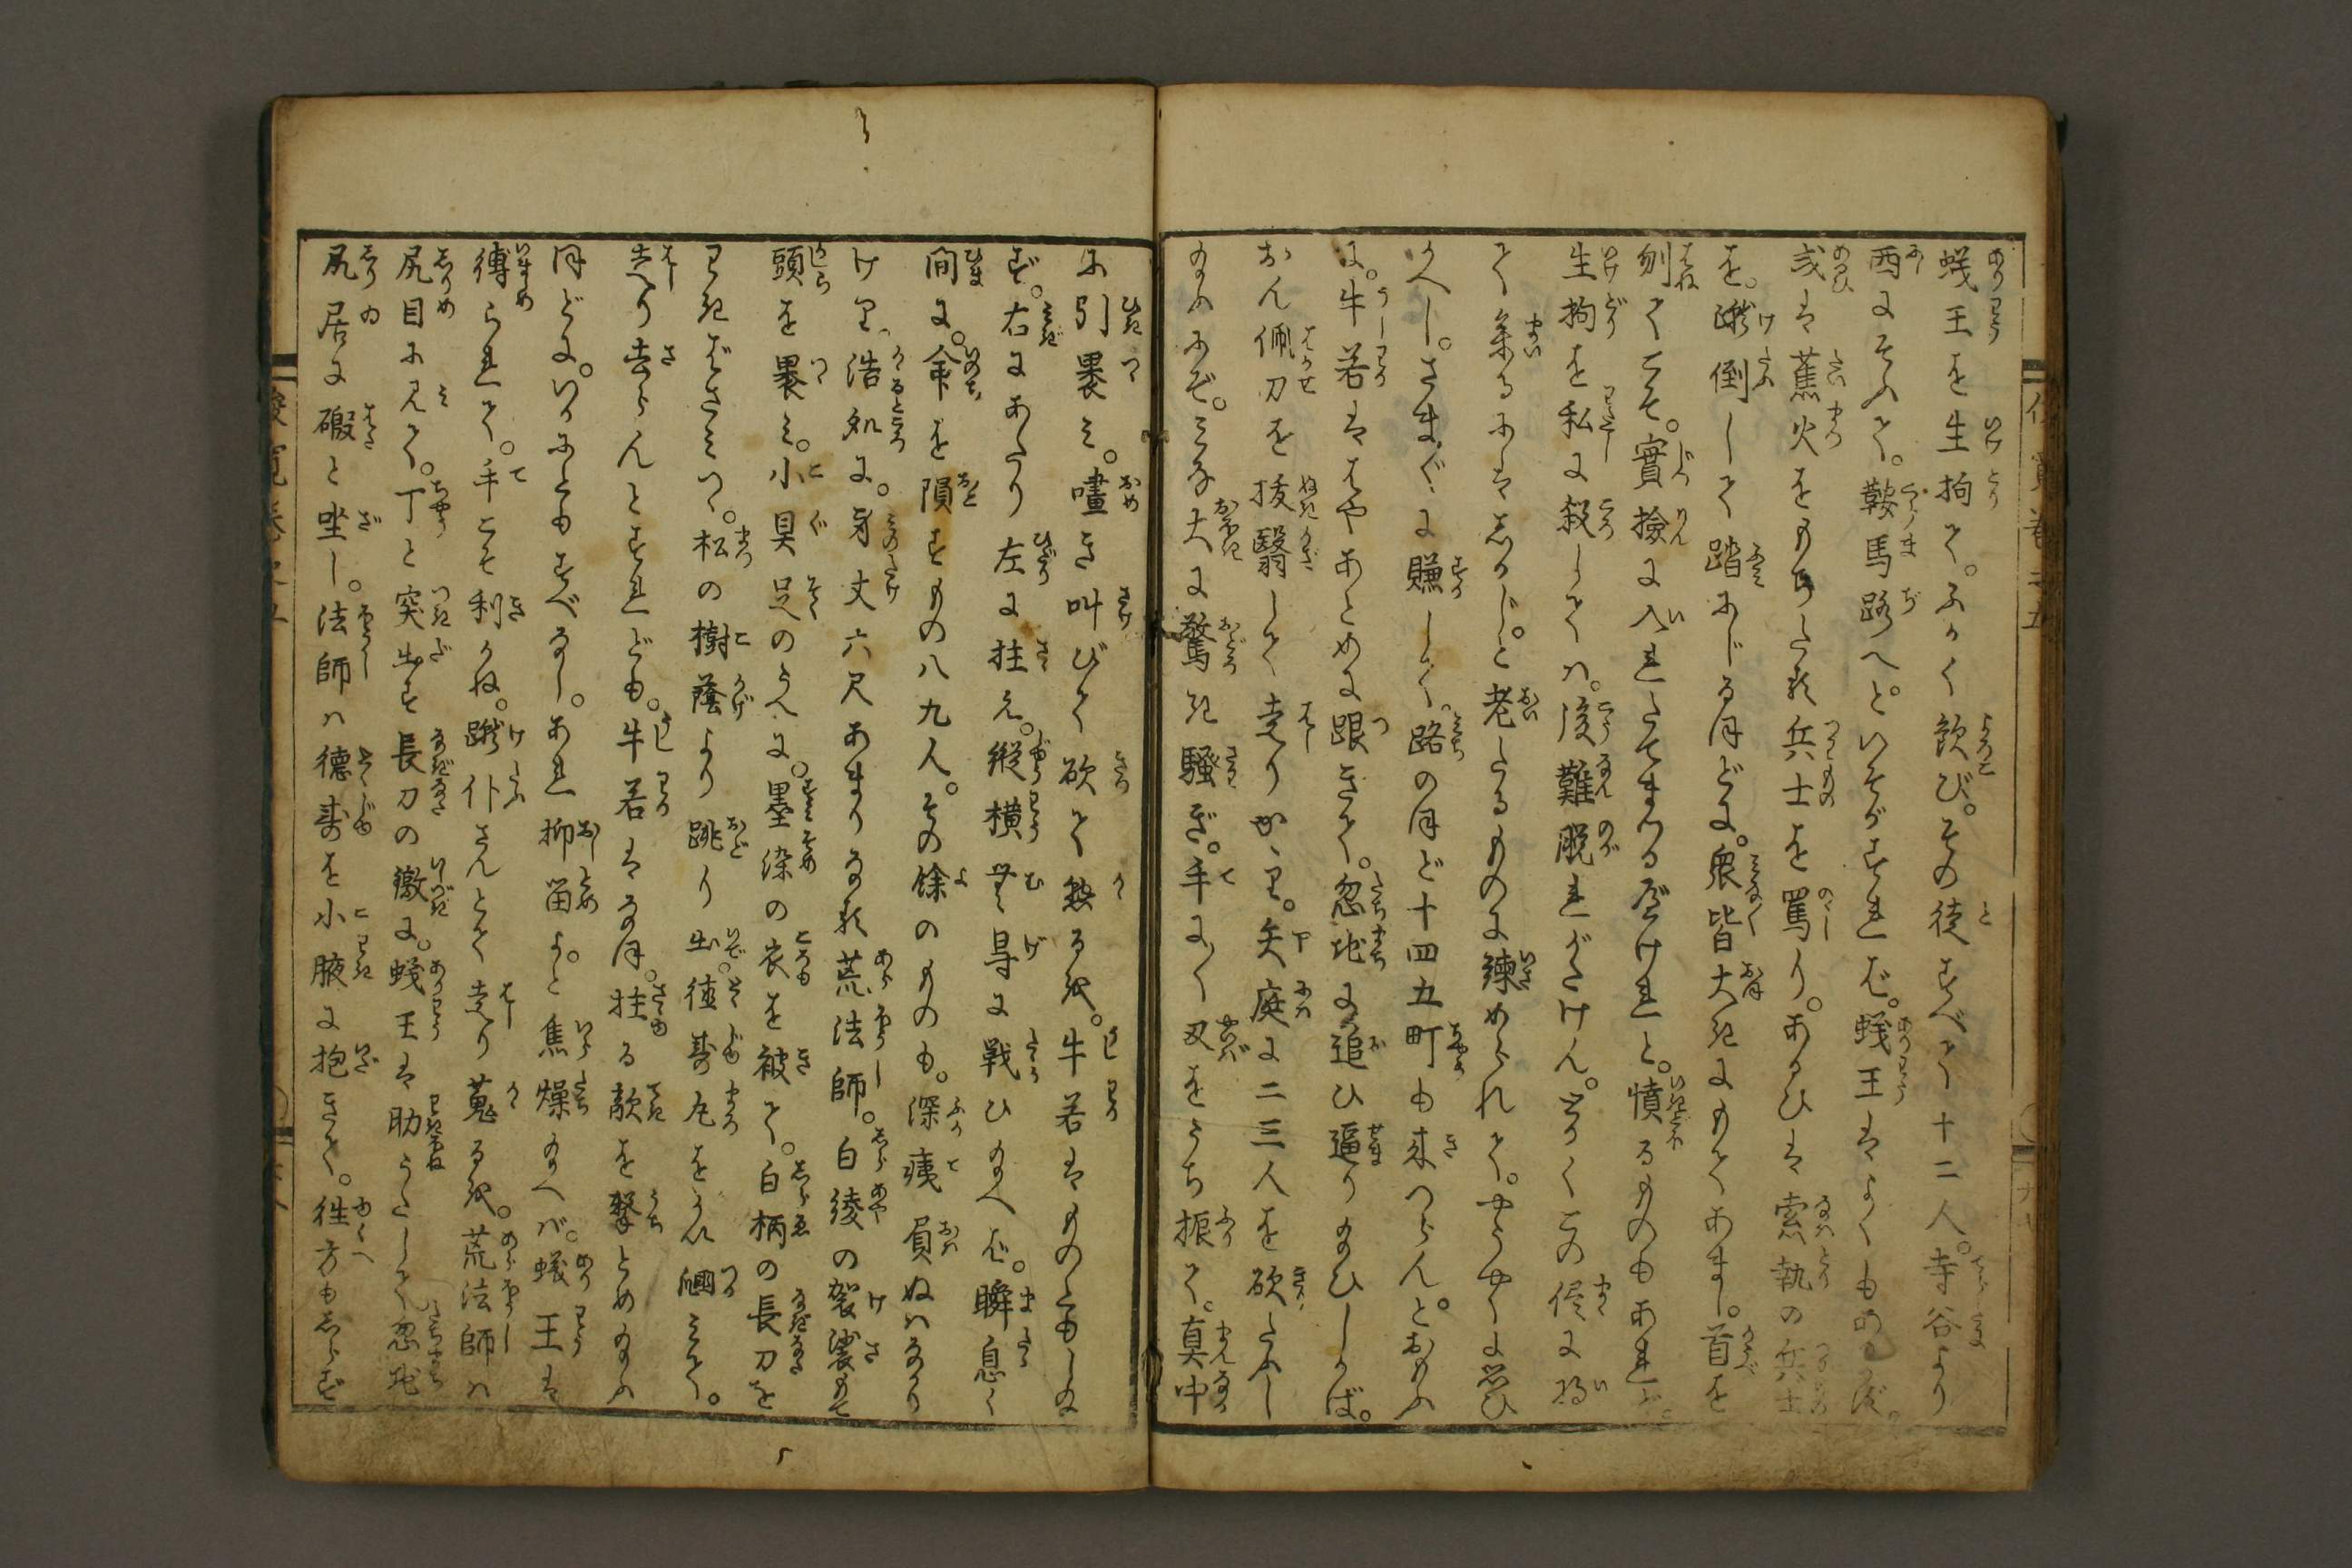 蟻王を生拘て。ふかく歓び。その徒すべて十二人。寺谷より
西にそふて。鞍馬路へと。いそがすれば。蟻王はよくも
或は蕉火をもちたる兵士を罵り。あるひは索執の兵士
を。蹴倒して踏にじるほどに。衆皆大きにもてあまし。首を
刎てこそ。實撿に入れたてまつるべけれと。憤るものもあれど。
生拘を私に殺しては。後難脱れがたけん。よくこの侭に將
て参るにはしかじ。と老たるものに諫められて。やうやくに思ひ
かへし。さま／″＼に賺しく。路のほど十四五町も来つらん。とおもふ
に。牛若ははやあとめに跟きて。忽地に追ひ逼り給ひしかば。
おん佩刀を抜翳して走りかゝり。矢庭に二三人を砍たふし
給ふにぞ。みな大に驚き騒ぎ。手に／＼刃をうち振て。真中
に引裹み。嚍き叫びて砍て懸るを。牛若はものともしね
ず。右にあたり左に拄え。縦横無导に戦ひ給へば。瞬息く
間に。命を隕すもの八九人。その餘のものも。深痍負ぬはなかり
けり。浩処に。身丈六尺あまりなる荒法師。白綾の袈裟もて
頭を裹み。小具足のうへに。墨染の衣を被て。白柄の長刀を
わきばさみつゝ。松の樹蔭より跳り出。徳壽丸をかい㧢みて。
走り去らんとすれども。牛若はなほ。拄る敵を撃とめ給ふ
ほどに。いかにともすべなし。あれ抑畄よ。と焦燥給へば。蟻王は
縛られて。手こそ利かね。蹴仆さんとて走り蒐るを。荒法師は
尻目に見て。丁と突出す長刀の鐓に。蟻王は肋うたして忽地
尻居に礑と坐し。法師は徳壽を小腋に抱きて。徃方もしらず